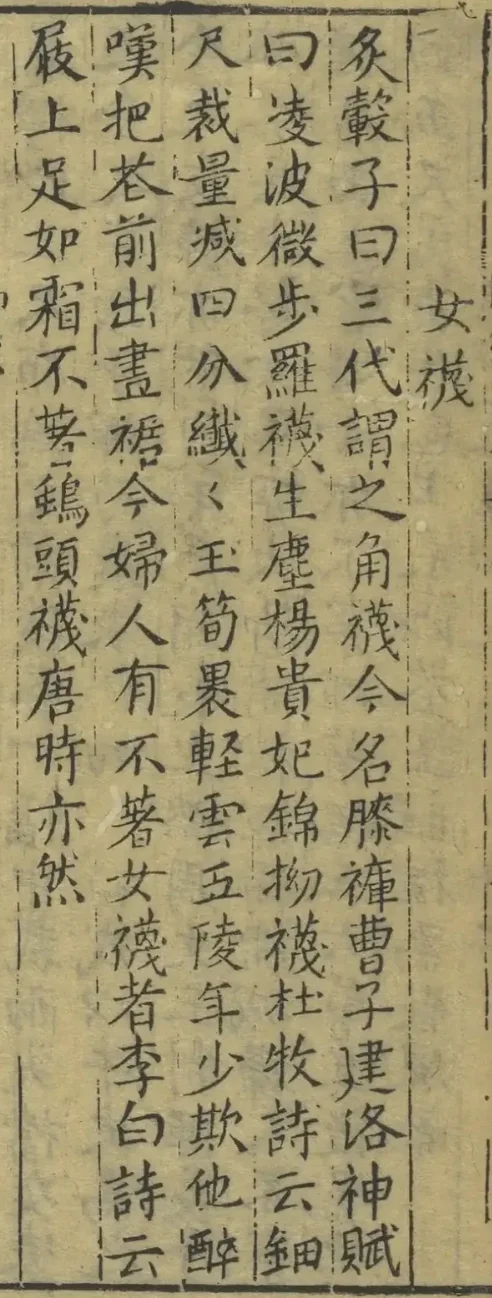 女襪
炙轂子曰三代謂之角襪今名膝褲曹子建洛神賦
曰凌波微步羅襪生塵楊貴妃錦拗襪杜牧詩云鈿
尺裁量减四分纖〻玉筍裹軽雲五陵年少欺他醉
嘆把花前出畫裙今婦人有不著女襪者李白詩云
屐上足如霜不著鵶頭襪唐時亦然